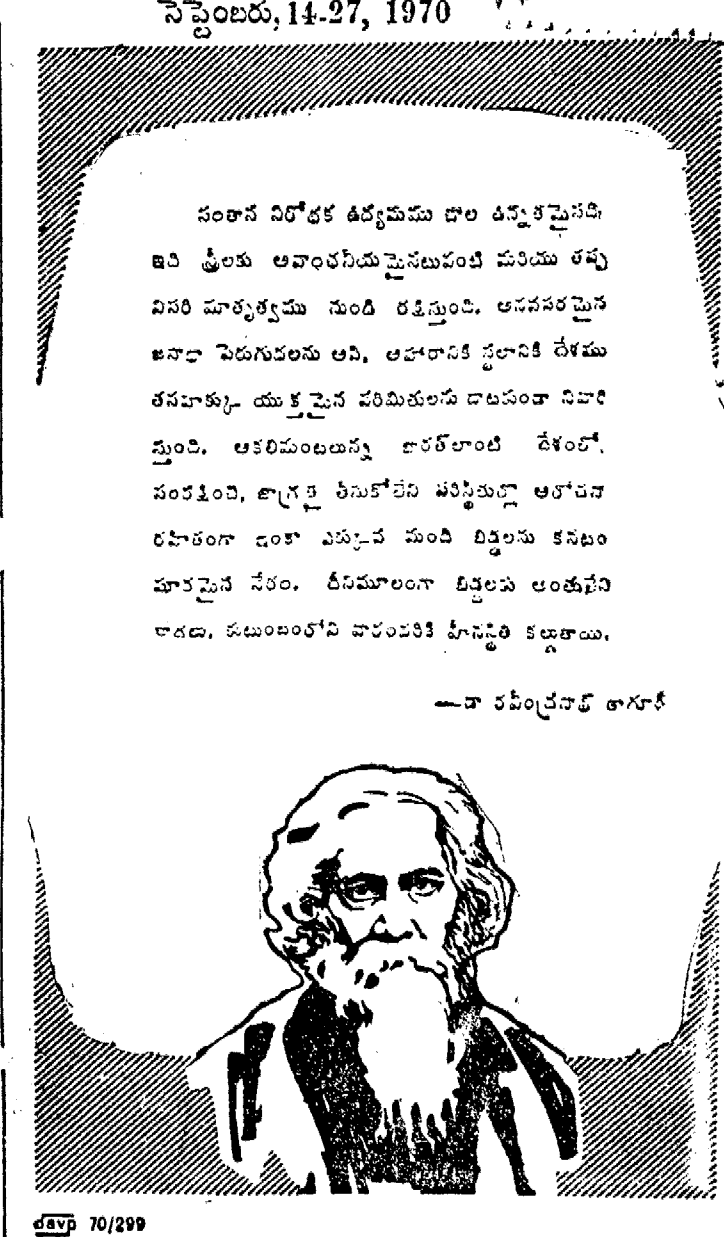 సెప్టెంబరు, 14-27, 1970
సంతాన నిరోధక ఉద్యమము చాల ఉన్నతమైనది.
ఇది స్త్రీలకు అవాంఛనీయమైనటువంటి మరియు తప్ప
నిసరి మాతృత్వము నుండి రక్షిస్తుంది. అనవసరమైన
జనాభా పెరుగుదలను ఆపి, ఆహారానికి స్థలానికి దేశము
తనహక్కు యుక్తమైన పరిమితులను దాటకుండా నివారి
స్తుంది. ఆకలిమంటలున్న భారత్‌లాంటి దేశంలో,
సంరక్షించి, జాగ్రత్త తీసుకోలేని పరిస్థితుల్లో ఆలోచనా
రహితంగా ఇంకా ఎక్కువ మంది బిడ్డలను కనటం
ఘోరమైన నేరం. దీనిమూలంగా బిడ్డలకు అంతులేని
బాధలు, కుటుంబంలోని వారందరికి హీనస్థితి కల్గుతాయి.
—డా రవీంద్రనాథ్ ఠాగూర్
davp 70/299